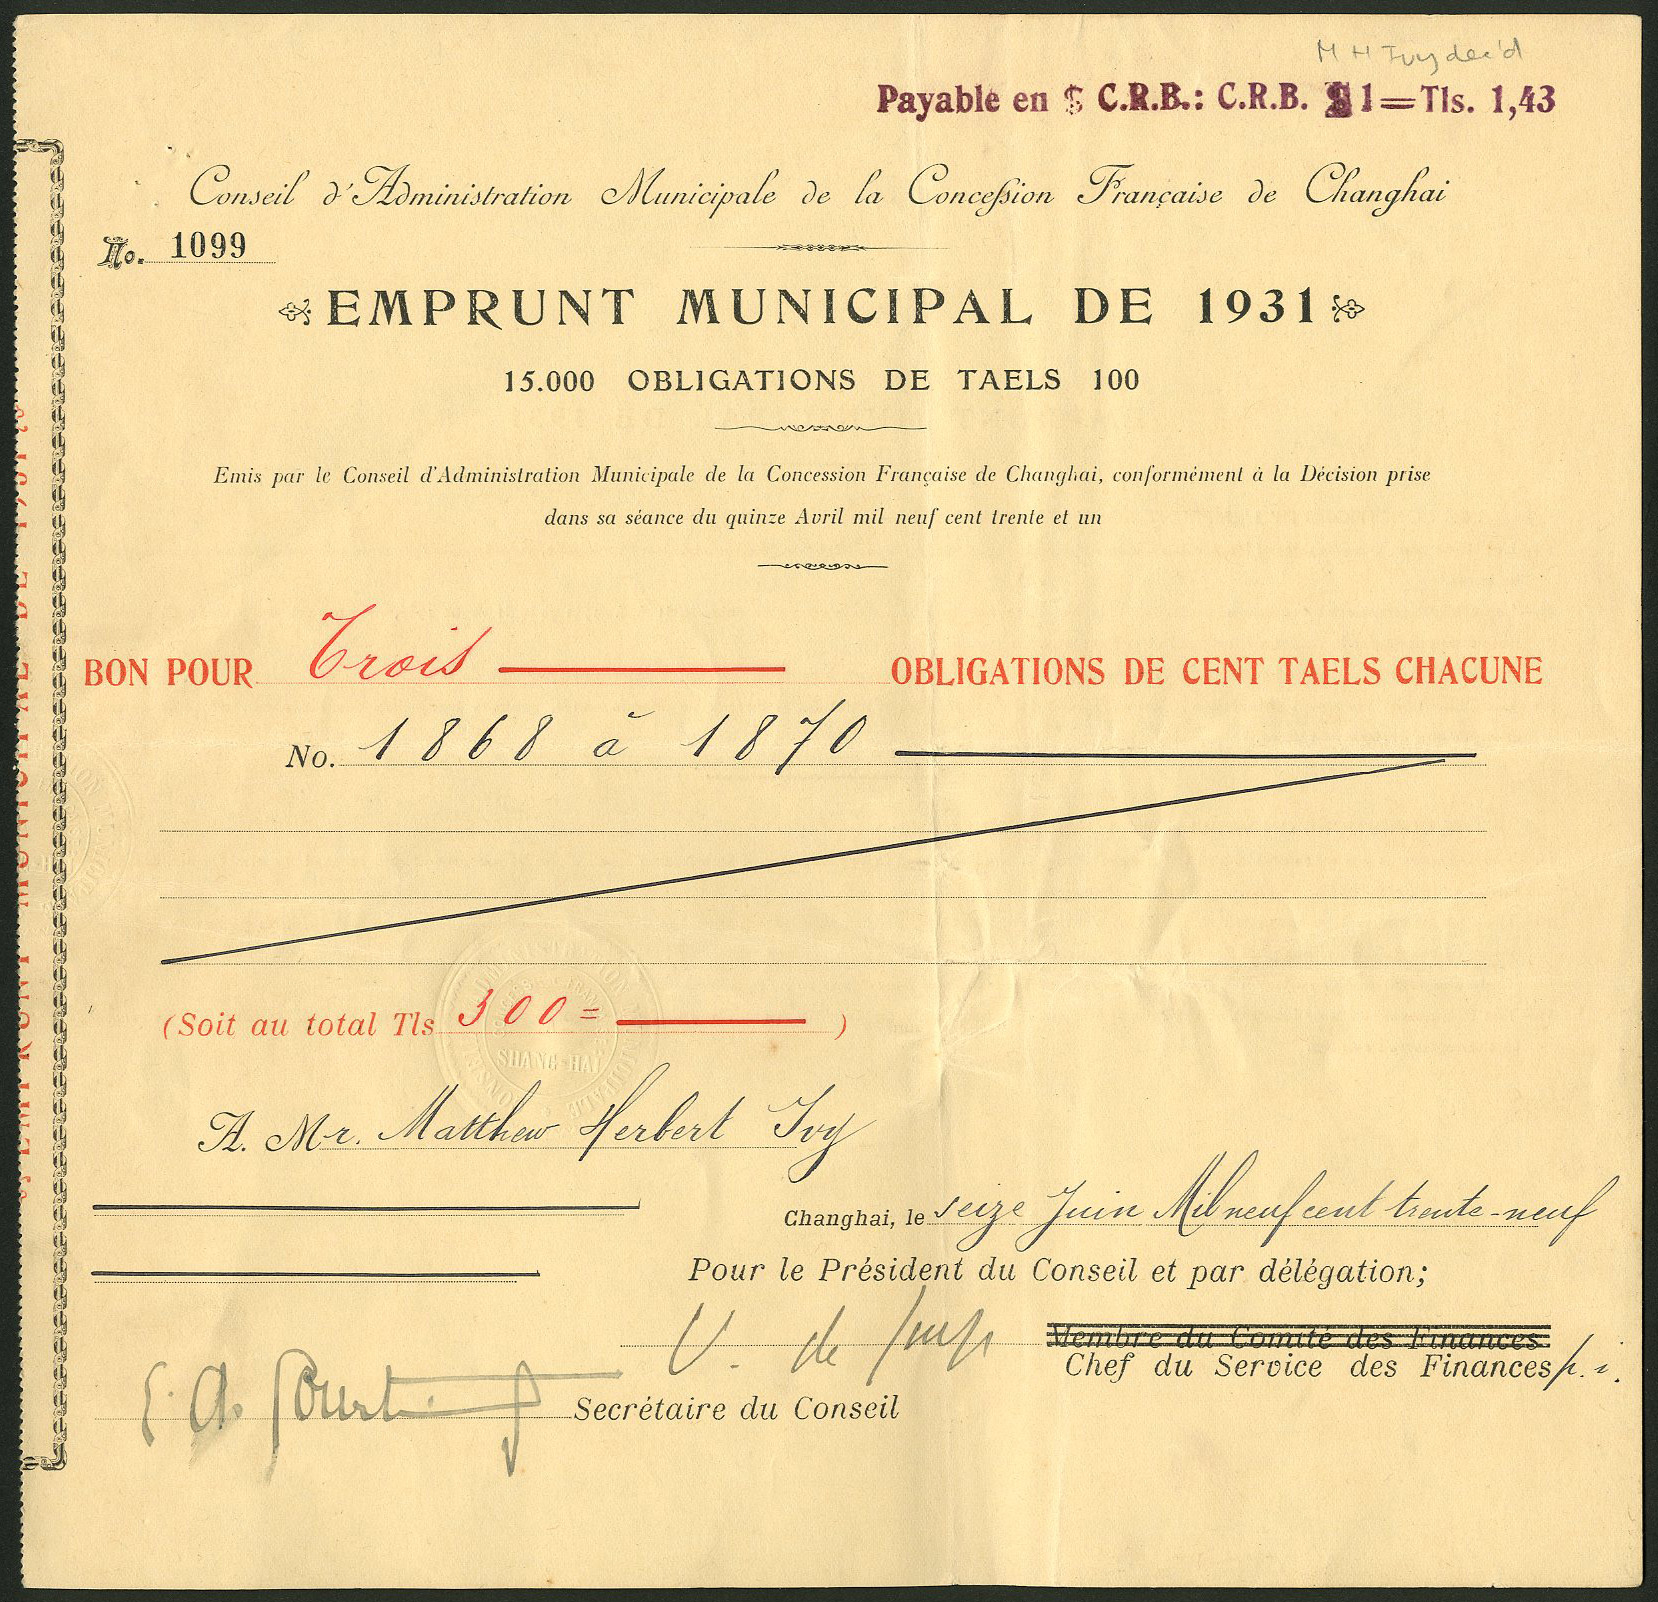 M H Ivy dec'd
Payable en $ C.R.B.: C.R.B. $ 1=Tls. 1,43
Conseil d'Administration Municipale de la Concession Française de Changhai
No. 1099
EMPRUNT MUNICIPAL DE 1931
15.000 OBLIGATIONS DE TAELS 100
Emis par le Conseil d'Administration Municipale de la Concession Française de Changhai, conformément à la Décision prise
dans sa séance du quinze Avril mil neuf cent trente et un
BON POUR Trois OBLIGATIONS DE CENT TAELS CHACUNE
No. 1868 à 1870
(Soit au total Tls 300= )
SHANG-HAI
A. Mr. Matthew Herbert Ivy
Changhai, le seize Juin Mil neuf cent trente-neuf
Pour le Président du Conseil et par délégation;
Membre du Comité des Finances
Chef du Service des Finances p. i.
Secrétaire du Conseil
EMPRUNT MUNICIPAL DE 1931